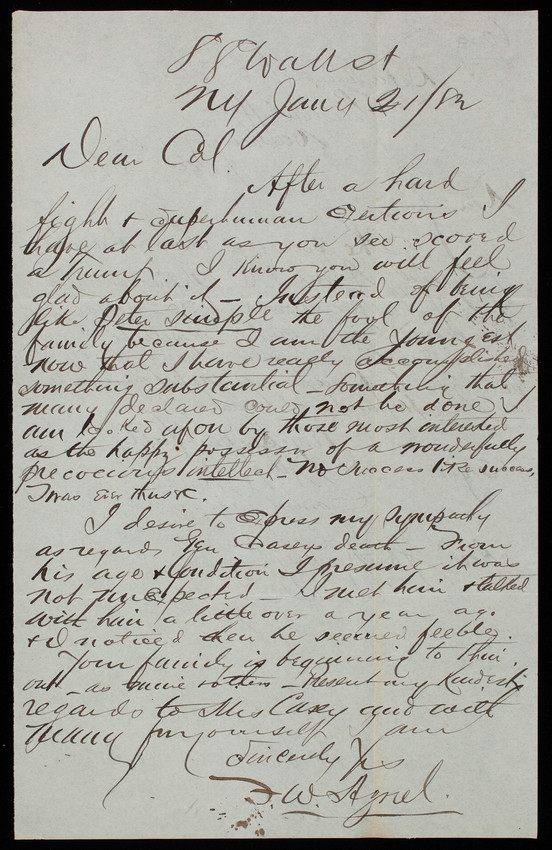 58 Wall St
NY Jany 21/82
Dear Col.
After a hard
fight & superhuman exertions I
have at last as you see scored
a trump. I know you will feel
glad about it – Instead of being
like Peter Simple the fool of the
family because I am the youngest
now that I have really accomplished
something substantial – Something that
many declared could not be done I
am looked upon by those most interested
as the happy possessor of a wonderfully
precocious intellect – No success like success,
Twas ever thus.
I desire to express my sympathy
as regards Casey's death – From
his age & condition I presume it was
not unexpected – I met him & talked
with him a little over a year ago
& I noticed then he seemed feeble.
Your family is beginning to thin
out – as mine & others – Present my kindest
regards to Mrs Casey and with
many for yourself I am
Sincerely Yrs
W. Agnel.